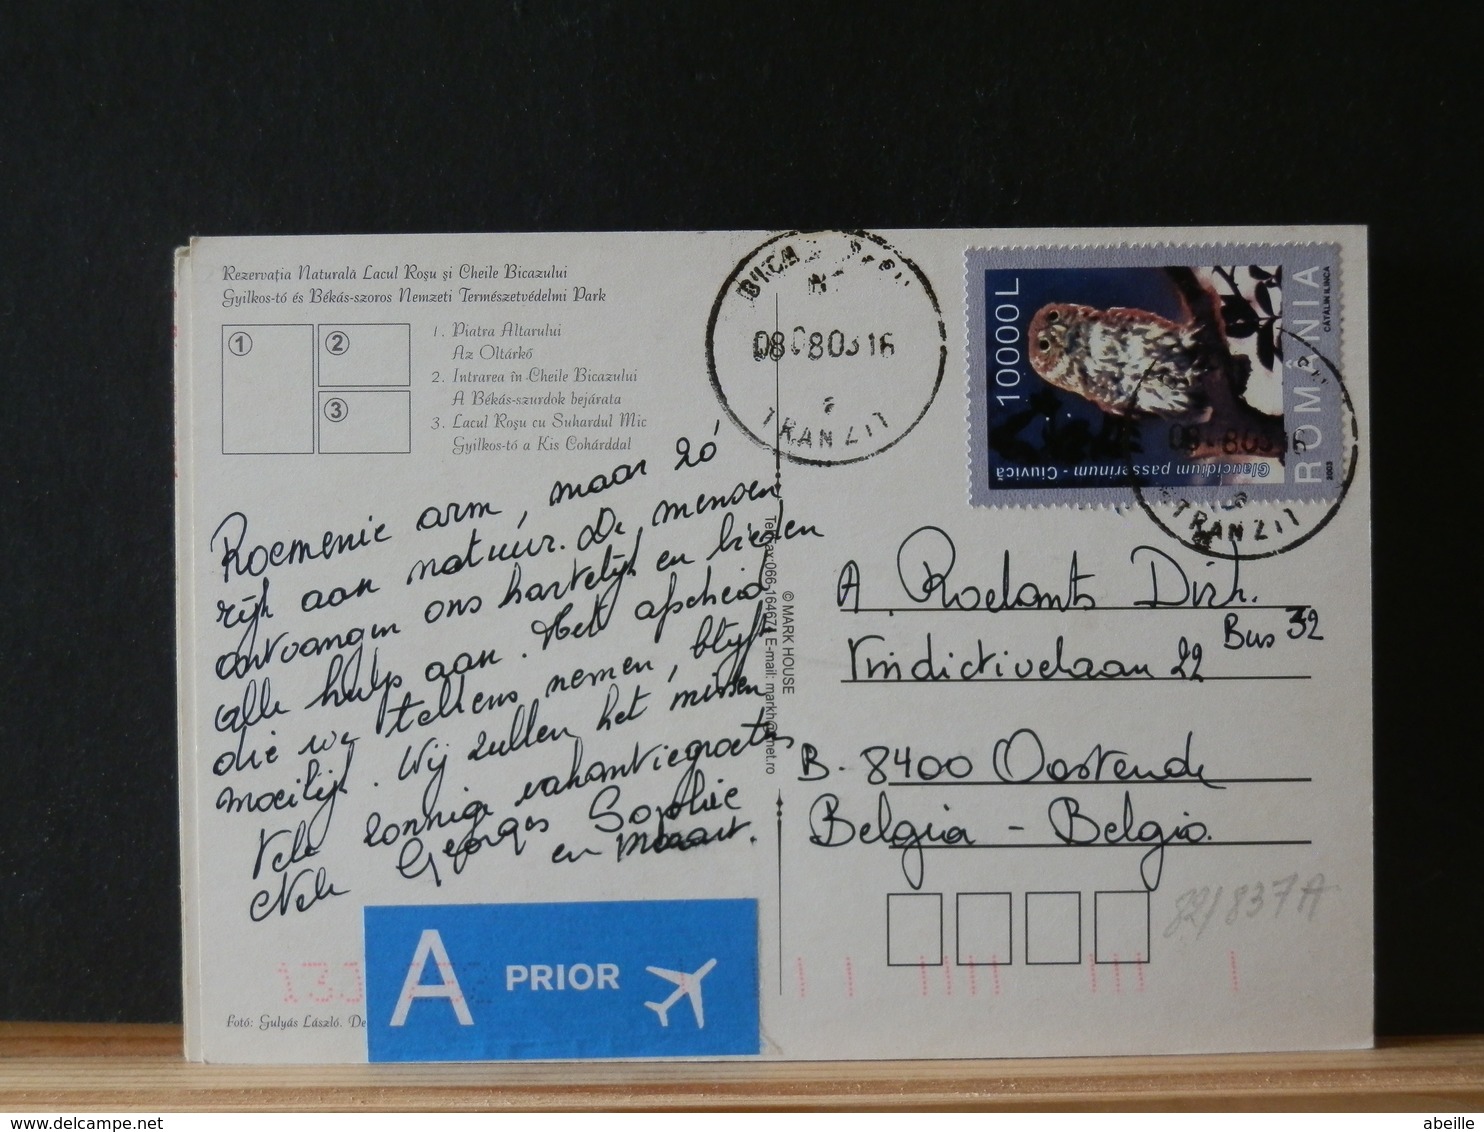 Rezervația Naturală Lacul Roșu și Cheile Bicazului
Gyilkos-tó és Békás-szoros Nemzeti Természetvédelmi Park
1
2
3
1. Piatra Altarului
Az Oltárkő
2. Intrarea în Cheile Bicazului
A Békás-szurdok bejárata
3. Lacul Roșu cu Suhardul Mic
Gyilkos-tó a Kis Cohárddal
Roemenie arm, maar zó
rijk aan natuur. De mensen
ontvangen ons hartelijk en bieden
alle hulp aan. Het afscheid
die we telkens nemen, blijft
moeilijk. Wij zullen het missen
Vele zonnige vakantiegroetes
Nele Georges Sophie
en Mozart.
A PRIOR
Fotó: Gulyás László. De
© MARK HOUSE
Tel/Fax:066-164674 E-mail: markh@
net.ro
08 08 03 16
TRANZIT
10000L
ROMÂNIA
CĂTĂLIN ILINCA
2003
Glaucidium passerinum - Ciuvică
08 8 03 16
TRANZIT
A. Roelants Dirk.
Vindictivelaan 22 Bus 32
B. 8400 Oostende
Belgia - Belgio.
82/837A
www.delcampe.net
abeille